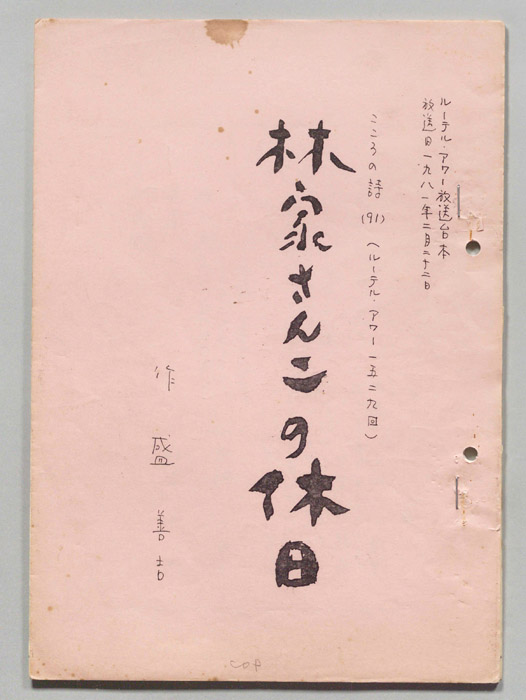 ルーテル・アワー放送台本
放送日一九八一年二月二十二日
こころの詩(91)(ルーテル・アワー一五二九回)
林家さんこの休日
作 盛善吉
COP